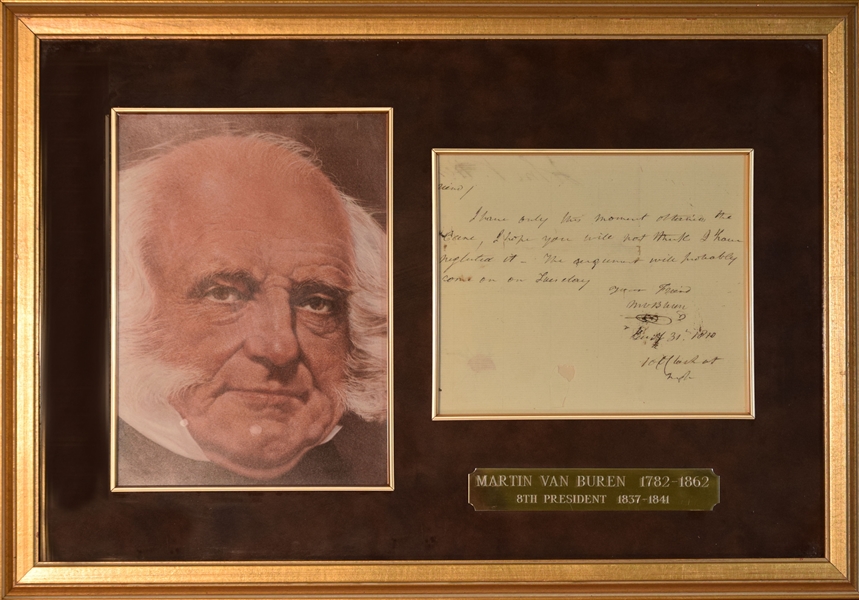 I have only this moment obtained the
Case, I hope you will not think I have
neglected it - The argument will probably
come on on Tuesday
Your Friend
MVBuren
31 1810
10 Clock at
MARTIN VAN BUREN 1782-1862
8TH PRESIDENT 1837-1841